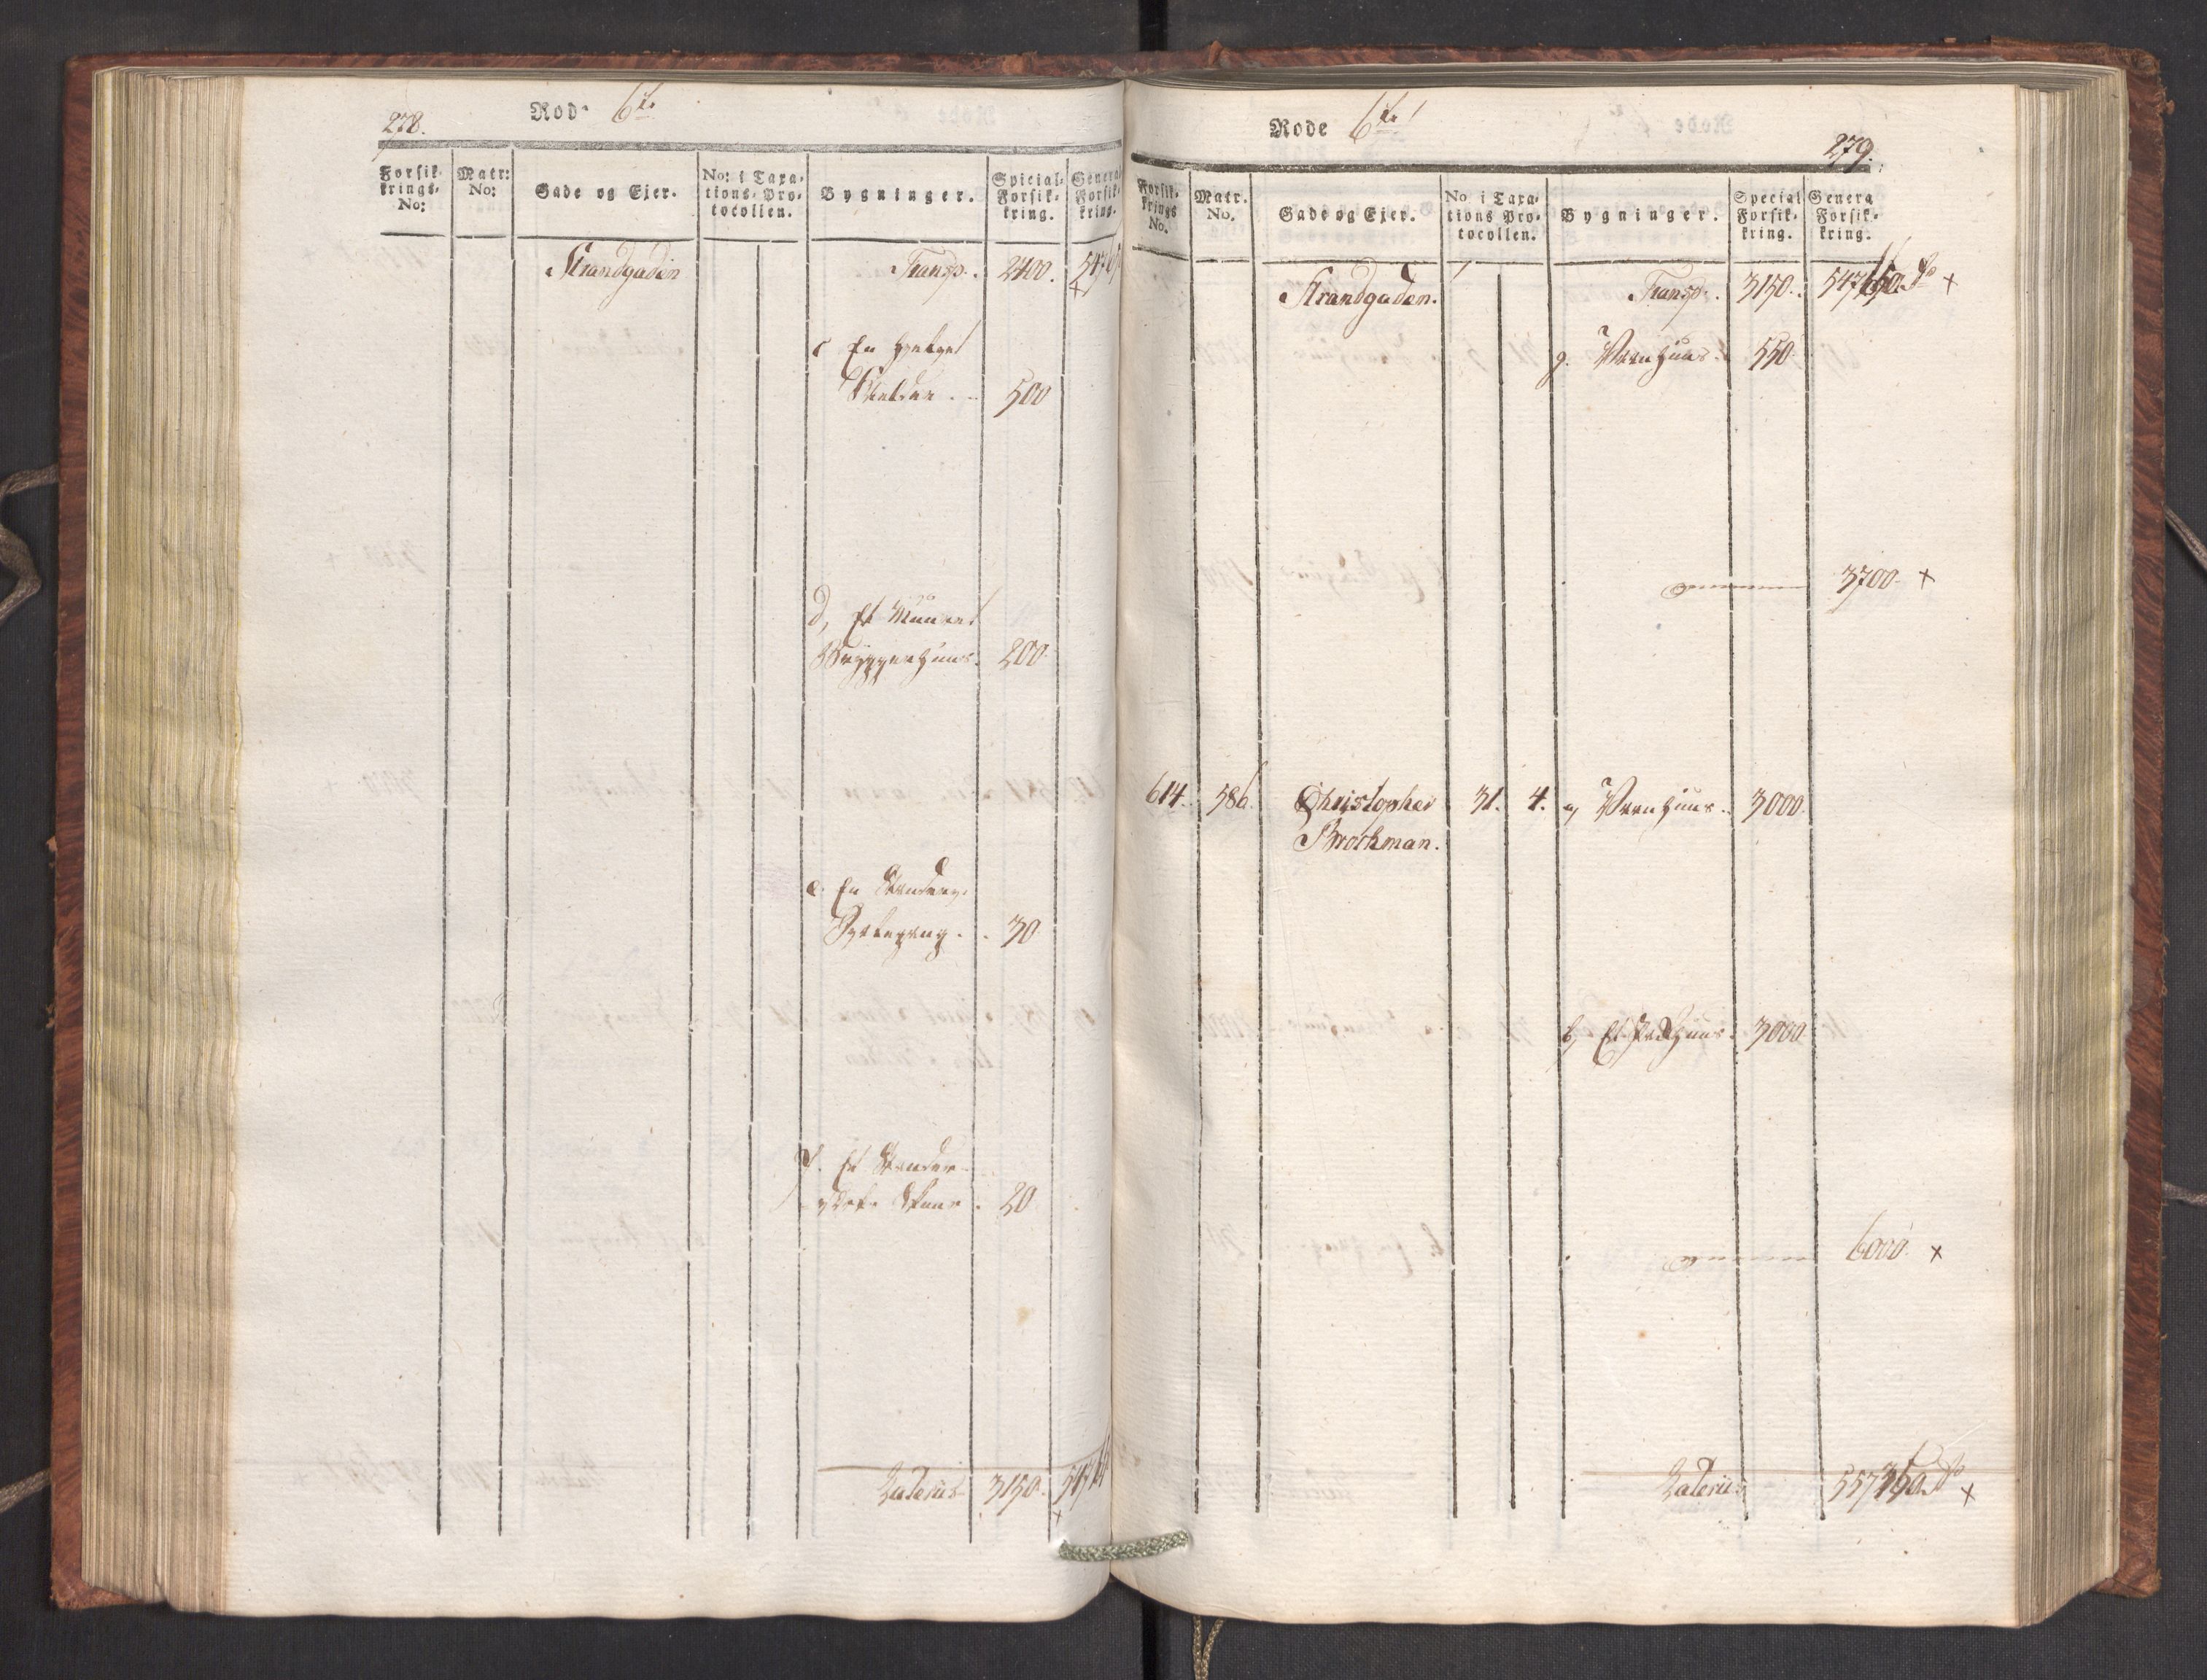 278.
Rode 6te
Forsikkrings-No:
Matr: No:
Gade og Ejer.
No: i Taxations-Protocollen.
Bygninger.
Special-Forsikkring.
General Forsikkring.
Strandgaden
Transp. 2400.
c En
500
d, Et Muuret
Bryggerhuus. 200.
e. En
30
f. Et
Skuur. 20
Laterus 3150.
Rode 6te
279.
Forsikkrings No.
Matr. No.
Gade og Ejer.
No i Taxations Protocollen.
Bygninger.
Special Forsikkring.
Genera Forsikkring.
Strandgaden.
Transp. 3150. 547650. +
g. Vaanhuus. 550.
3700. +
614. 586. Christopher 31. 4. a, Vaanhuus. 3000.
Brockman.
b, Et Pakhuus. 3000.
6000. +
Laterus 557350. +